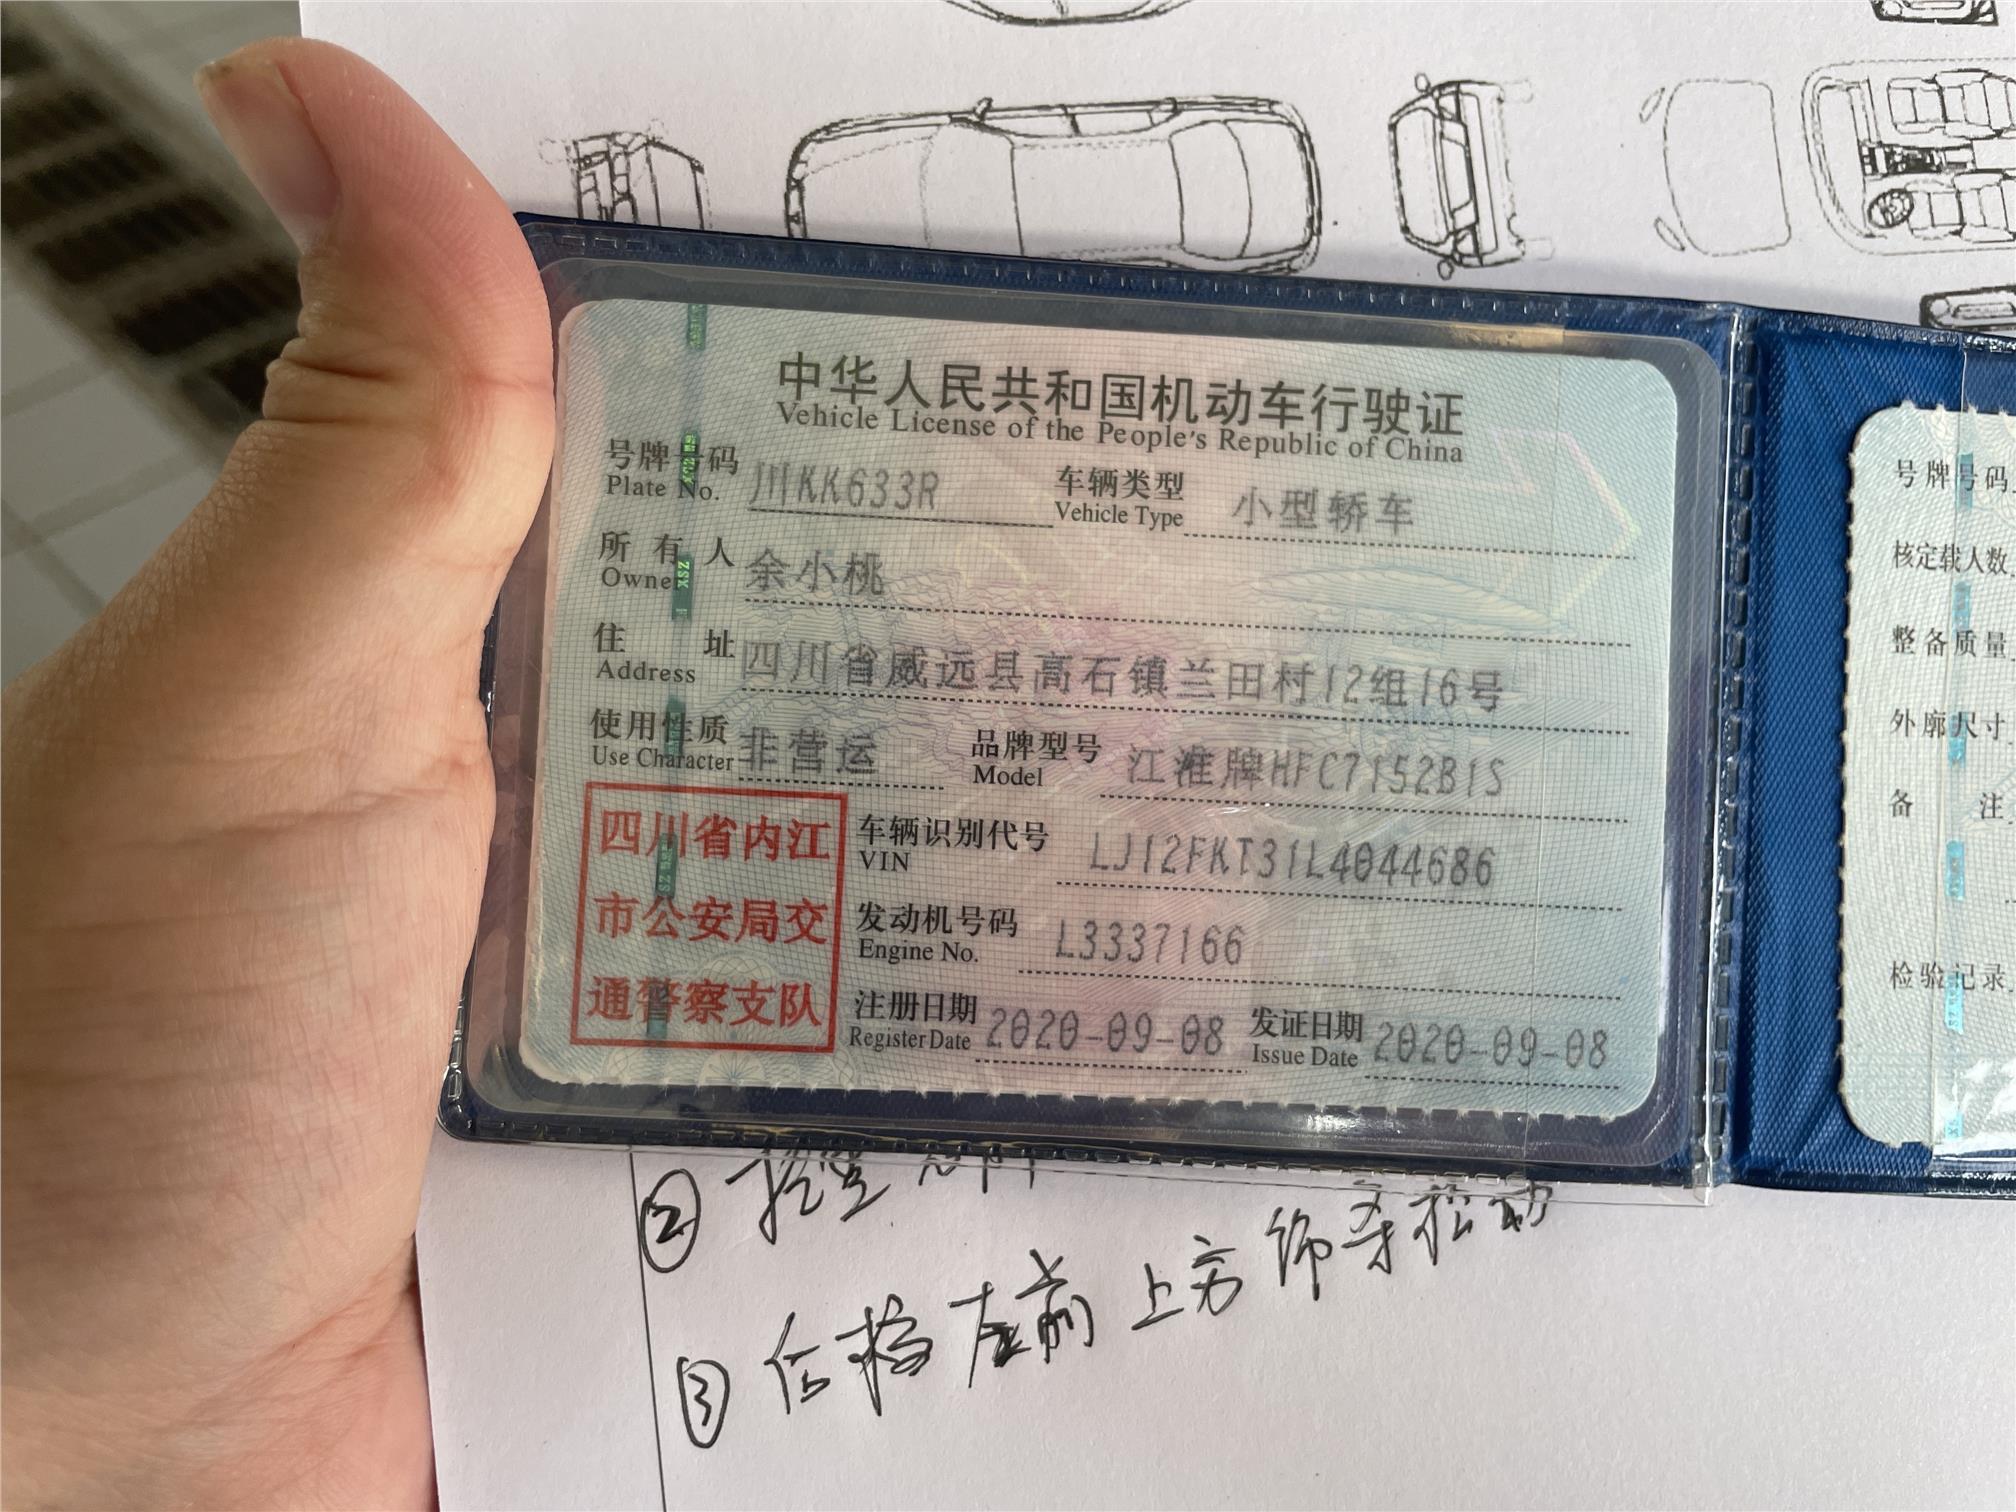 中华人民共和国机动车行驶证
Vehicle License of the People's Republic of China
号牌号码 川KK633R 车辆类型 小型轿车
Plate No. Vehicle Type
所有人 余小桃
Owner
住址 四川省威远县高石镇兰田村12组16号
Address
使用性质 非营运 品牌型号 江淮牌HFC7152B1S
Use Character Model
四川省内江
市公安局交
通警察支队
车辆识别代号 LJ12FKT31L4044686
VIN
发动机号码 L3337166
Engine No.
注册日期 2020-09-08 发证日期 2020-09-08
Register Date Issue Date
号牌号码
核定载人数
整备质量
外廓尺寸
备注
检验记录
②
③ 后挡左前上方饰条松动